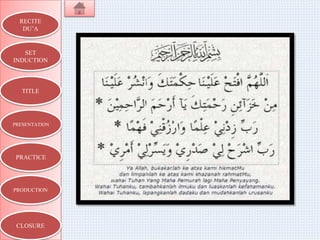 RECITE
DU'A
SET
INDUCTION
TITLE
PRESENTATION
PRACTICE
PRODUCTION
CLOSURE
بِسْمِ اللهِ الرَّحْمٰنِ الرَّحِيْمِ
اَللّٰهُمَّ افْتَحْ عَلَيْنَا حِكْمَتَكَ وَانْشُرْ عَلَيْنَا
مِنْ خَزَآئِنِ رَحْمَتِكَ يَآ أَرْحَمَ الرَّاحِمِيْنَ *
رَبِّ زِدْنِيْ عِلْمًا وَارْزُقْنِيْ فَهْمًا *
رَبِّ اشْرَحْ لِيْ صَدْرِيْ وَيَسِّرْلِيْ أَمْرِيْ *
Ya Allah, bukakanlah ke atas kami hikmatMu
dan limpahilah ke atas kami khazanah rahmatMu,
wahai Tuhan Yang Maha Pemurah lagi Maha Penyayang.
Wahai Tuhanku, tambahkanlah ilmuku dan luaskanlah kefahamanku.
Wahai Tuhanku, lapangkanlah dadaku dan mudahkanlah urusanku